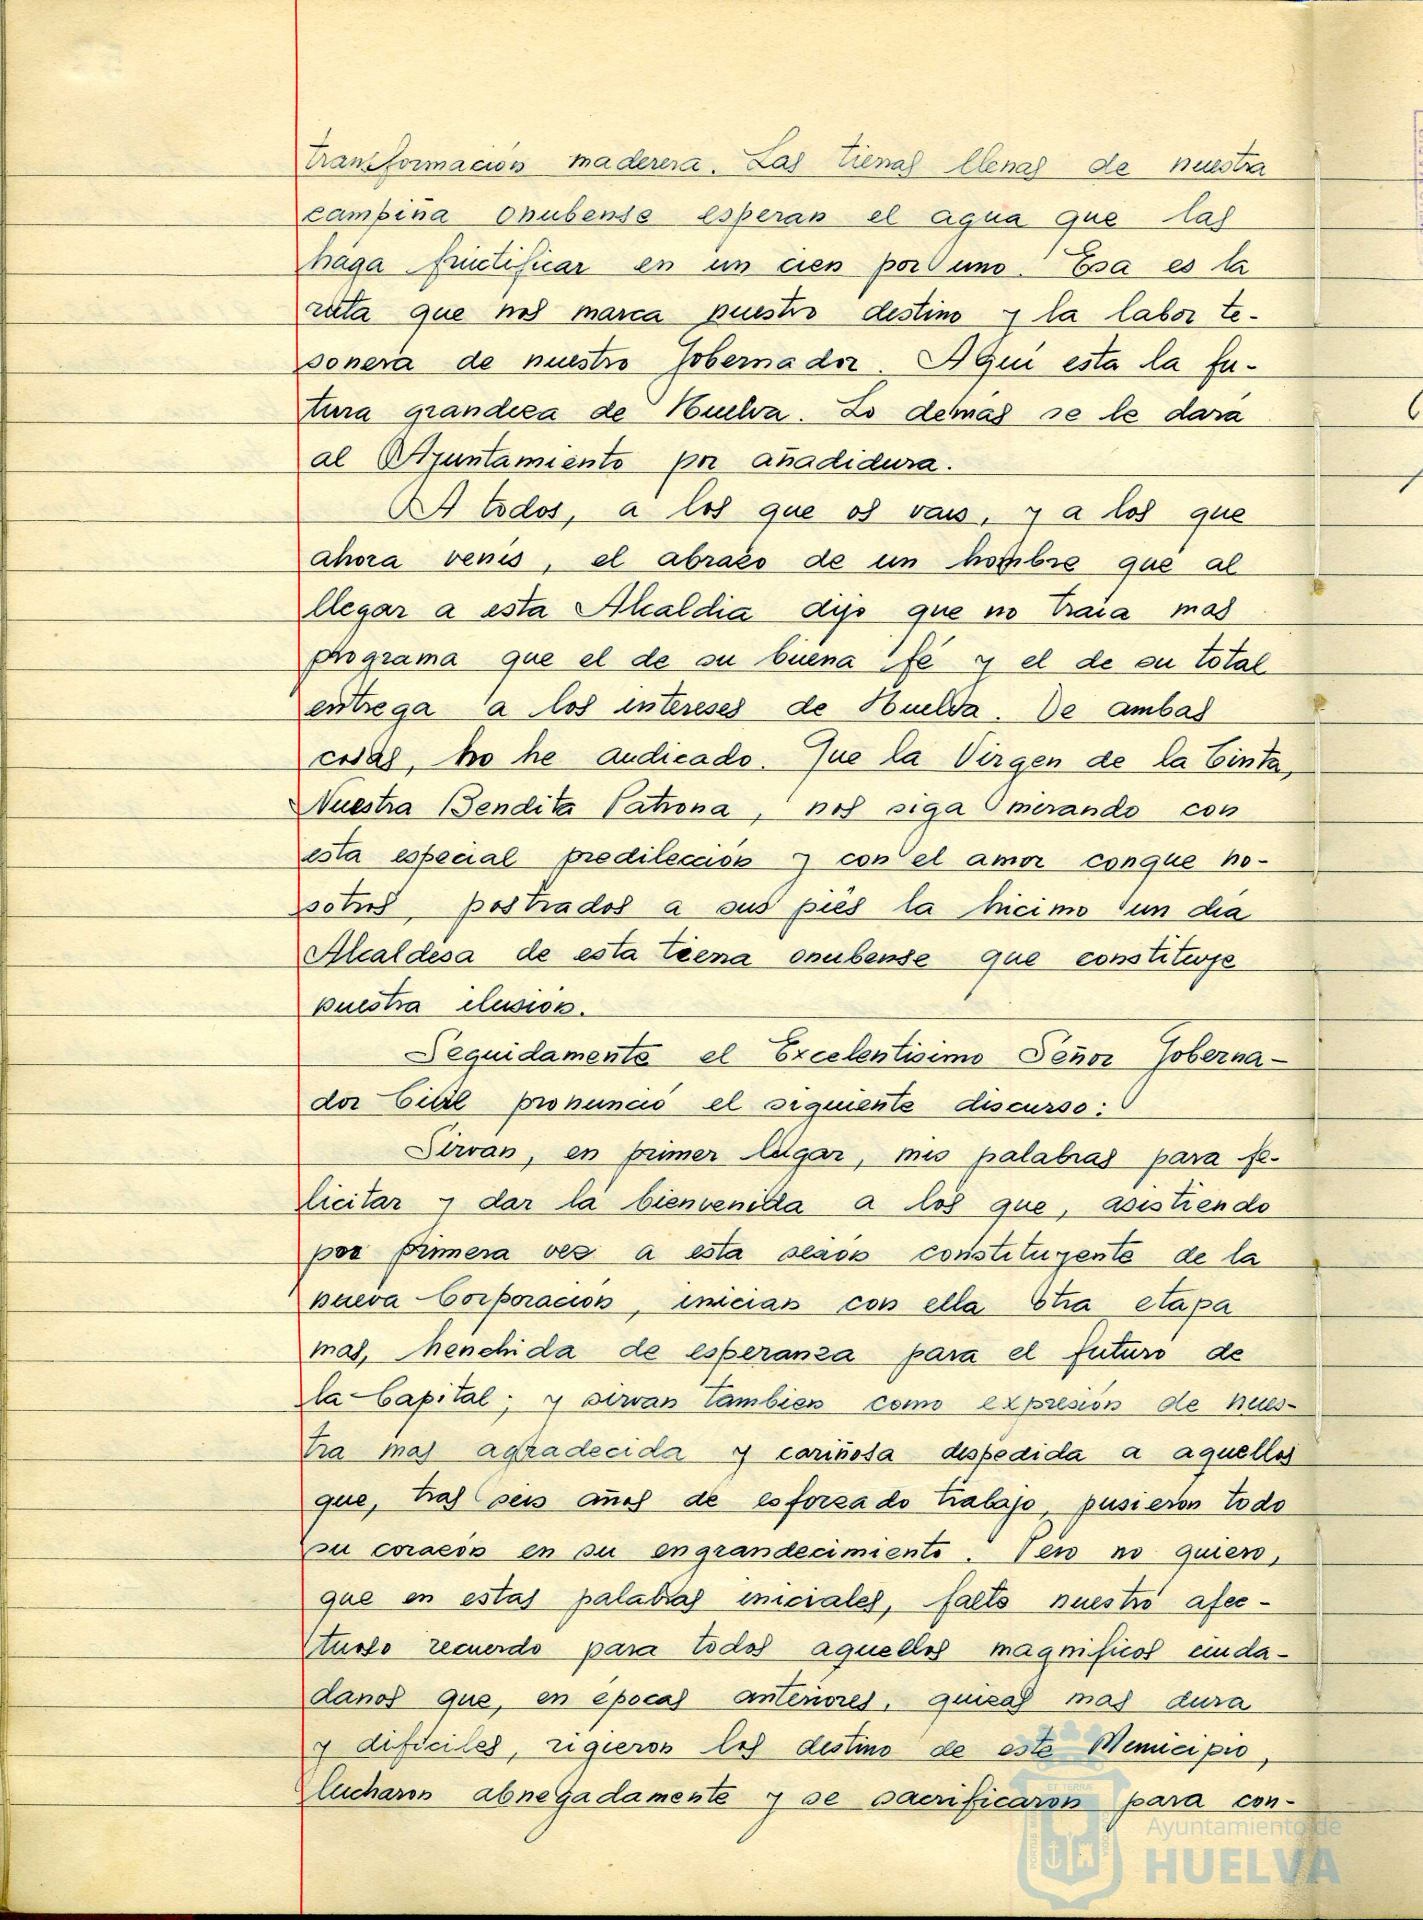 transformación maderera. Las tierras llenas de nuestra
campiña onubense esperan el agua que las
haga fructificar en un cien por uno. Esa es la
ruta que nos marca nuestro destino y la labor te-
sonera de nuestro Gobernador. Aquí esta la fu-
tura grandeza de Huelva. Lo demás se le dará
al Ayuntamiento por añadidura.
A todos, a los que os vais, y a los que
ahora venís, el abrazo de un hombre que al
llegar a esta Alcaldia dijo que no traia mas
programa que el de su buena fé y el de su total
entrega a los intereses de Huelva. De ambas
cosas, no he audicado. Que la Virgen de la Cinta,
Nuestra Bendita Patrona, nos siga mirando con
esta especial predilección y con el amor conque no-
sotros, postrados a sus piés la hicimo un día
Alcaldesa de esta tierra onubense que constituye
nuestra ilusión.
Seguidamente el Excelentisimo Señor Goberna-
dor Civil pronunció el siguiente discurso:
Sirvan, en primer lugar, mis palabras para fe-
licitar y dar la bienvenida a los que, asistiendo
por primera vez a esta sesión constituyente de la
nueva Corporación, inician con ella otra etapa
mas, henchida de esperanza para el futuro de
la Capital; y sirvan tambien como expresión de nues-
tra mas agradecida y cariñosa despedida a aquellos
que, tras seis años de esforzado trabajo, pusieron todo
su corazón en su engrandecimiento. Pero no quiero,
que en estas palabras iniciales, falte nuestro afec-
tuoso recuerdo para todos aquellos magnificos ciuda-
danos que, en épocas anteriores, quizas mas dura
y dificiles, rigieron los destino de este Municipio,
lucharon abnegadamente y se sacrificaron para con-
Ayuntamiento de
HUELVA